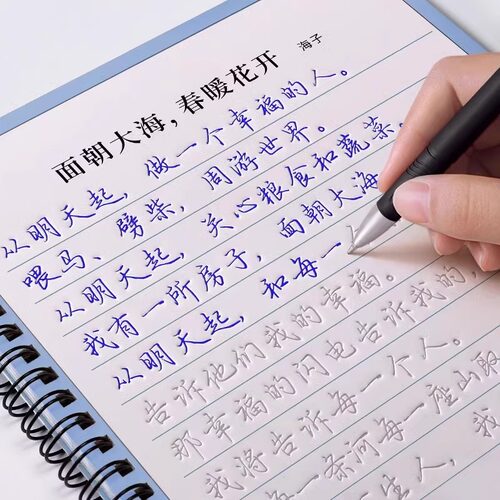 面朝大海，春暖花开 海子
从明天起，做一个幸福的人。
喂马、劈柴，周游世界。
从明天起，关心粮食和蔬菜。
我有一所房子，面朝大海
从明天起，和每一
告诉他们我的幸福。
那幸福的闪电告诉我的，
我将告诉每一个人。
一条河每一座山取
生人，我